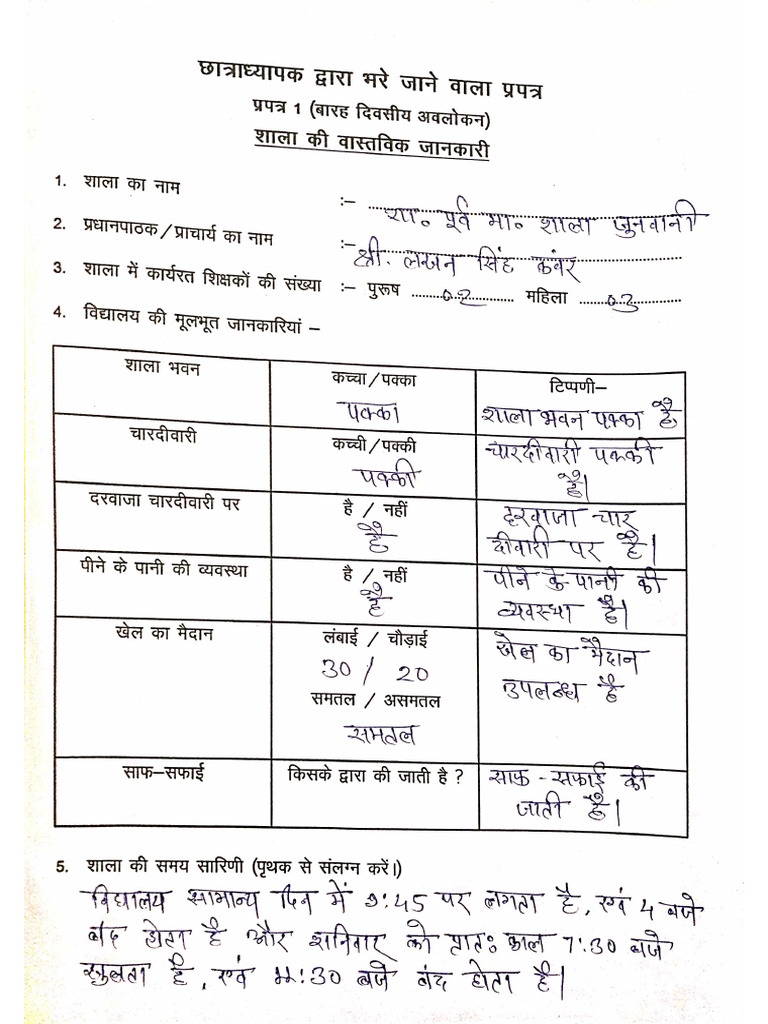 छात्राध्यापक द्वारा भरे जाने वाला प्रपत्र
प्रपत्र 1 (बारह दिवसीय अवलोकन)
शाला की वास्तविक जानकारी
1. शाला का नाम :– शा॰ पूर्व मा॰ शाला जुनवानी
2. प्रधानपाठक/प्राचार्य का नाम :– श्री. लखन सिंह कंवर
3. शाला में कार्यरत शिक्षकों की संख्या :– पुरूष 02 महिला 03
4. विद्यालय की मूलभूत जानकारियां –
शाला भवन कच्चा/पक्का टिप्पणी–
पक्का शाला भवन पक्का है
चारदीवारी कच्ची/पक्की चारदीवारी पक्की
पक्की है।
दरवाजा चारदीवारी पर है / नहीं दरवाजा चार
है दीवारी पर है।
पीने के पानी की व्यवस्था है / नहीं पीने के पानी की
है व्यवस्था है।
खेल का मैदान लंबाई / चौड़ाई खेल का मैदान
30 / 20 उपलब्ध है
समतल / असमतल
समतल
साफ–सफाई किसके द्वारा की जाती है ? साफ - सफाई की
जाती है।
5. शाला की समय सारिणी (पृथक से संलग्न करें।)
विद्यालय सामान्य दिन में 9:45 पर लगता है, एवं 4 बजे
बंद होता है और शनिवार को प्रातः काल 7:30 बजे
खुलता है, एवं 11:30 बजे बंद होता है।